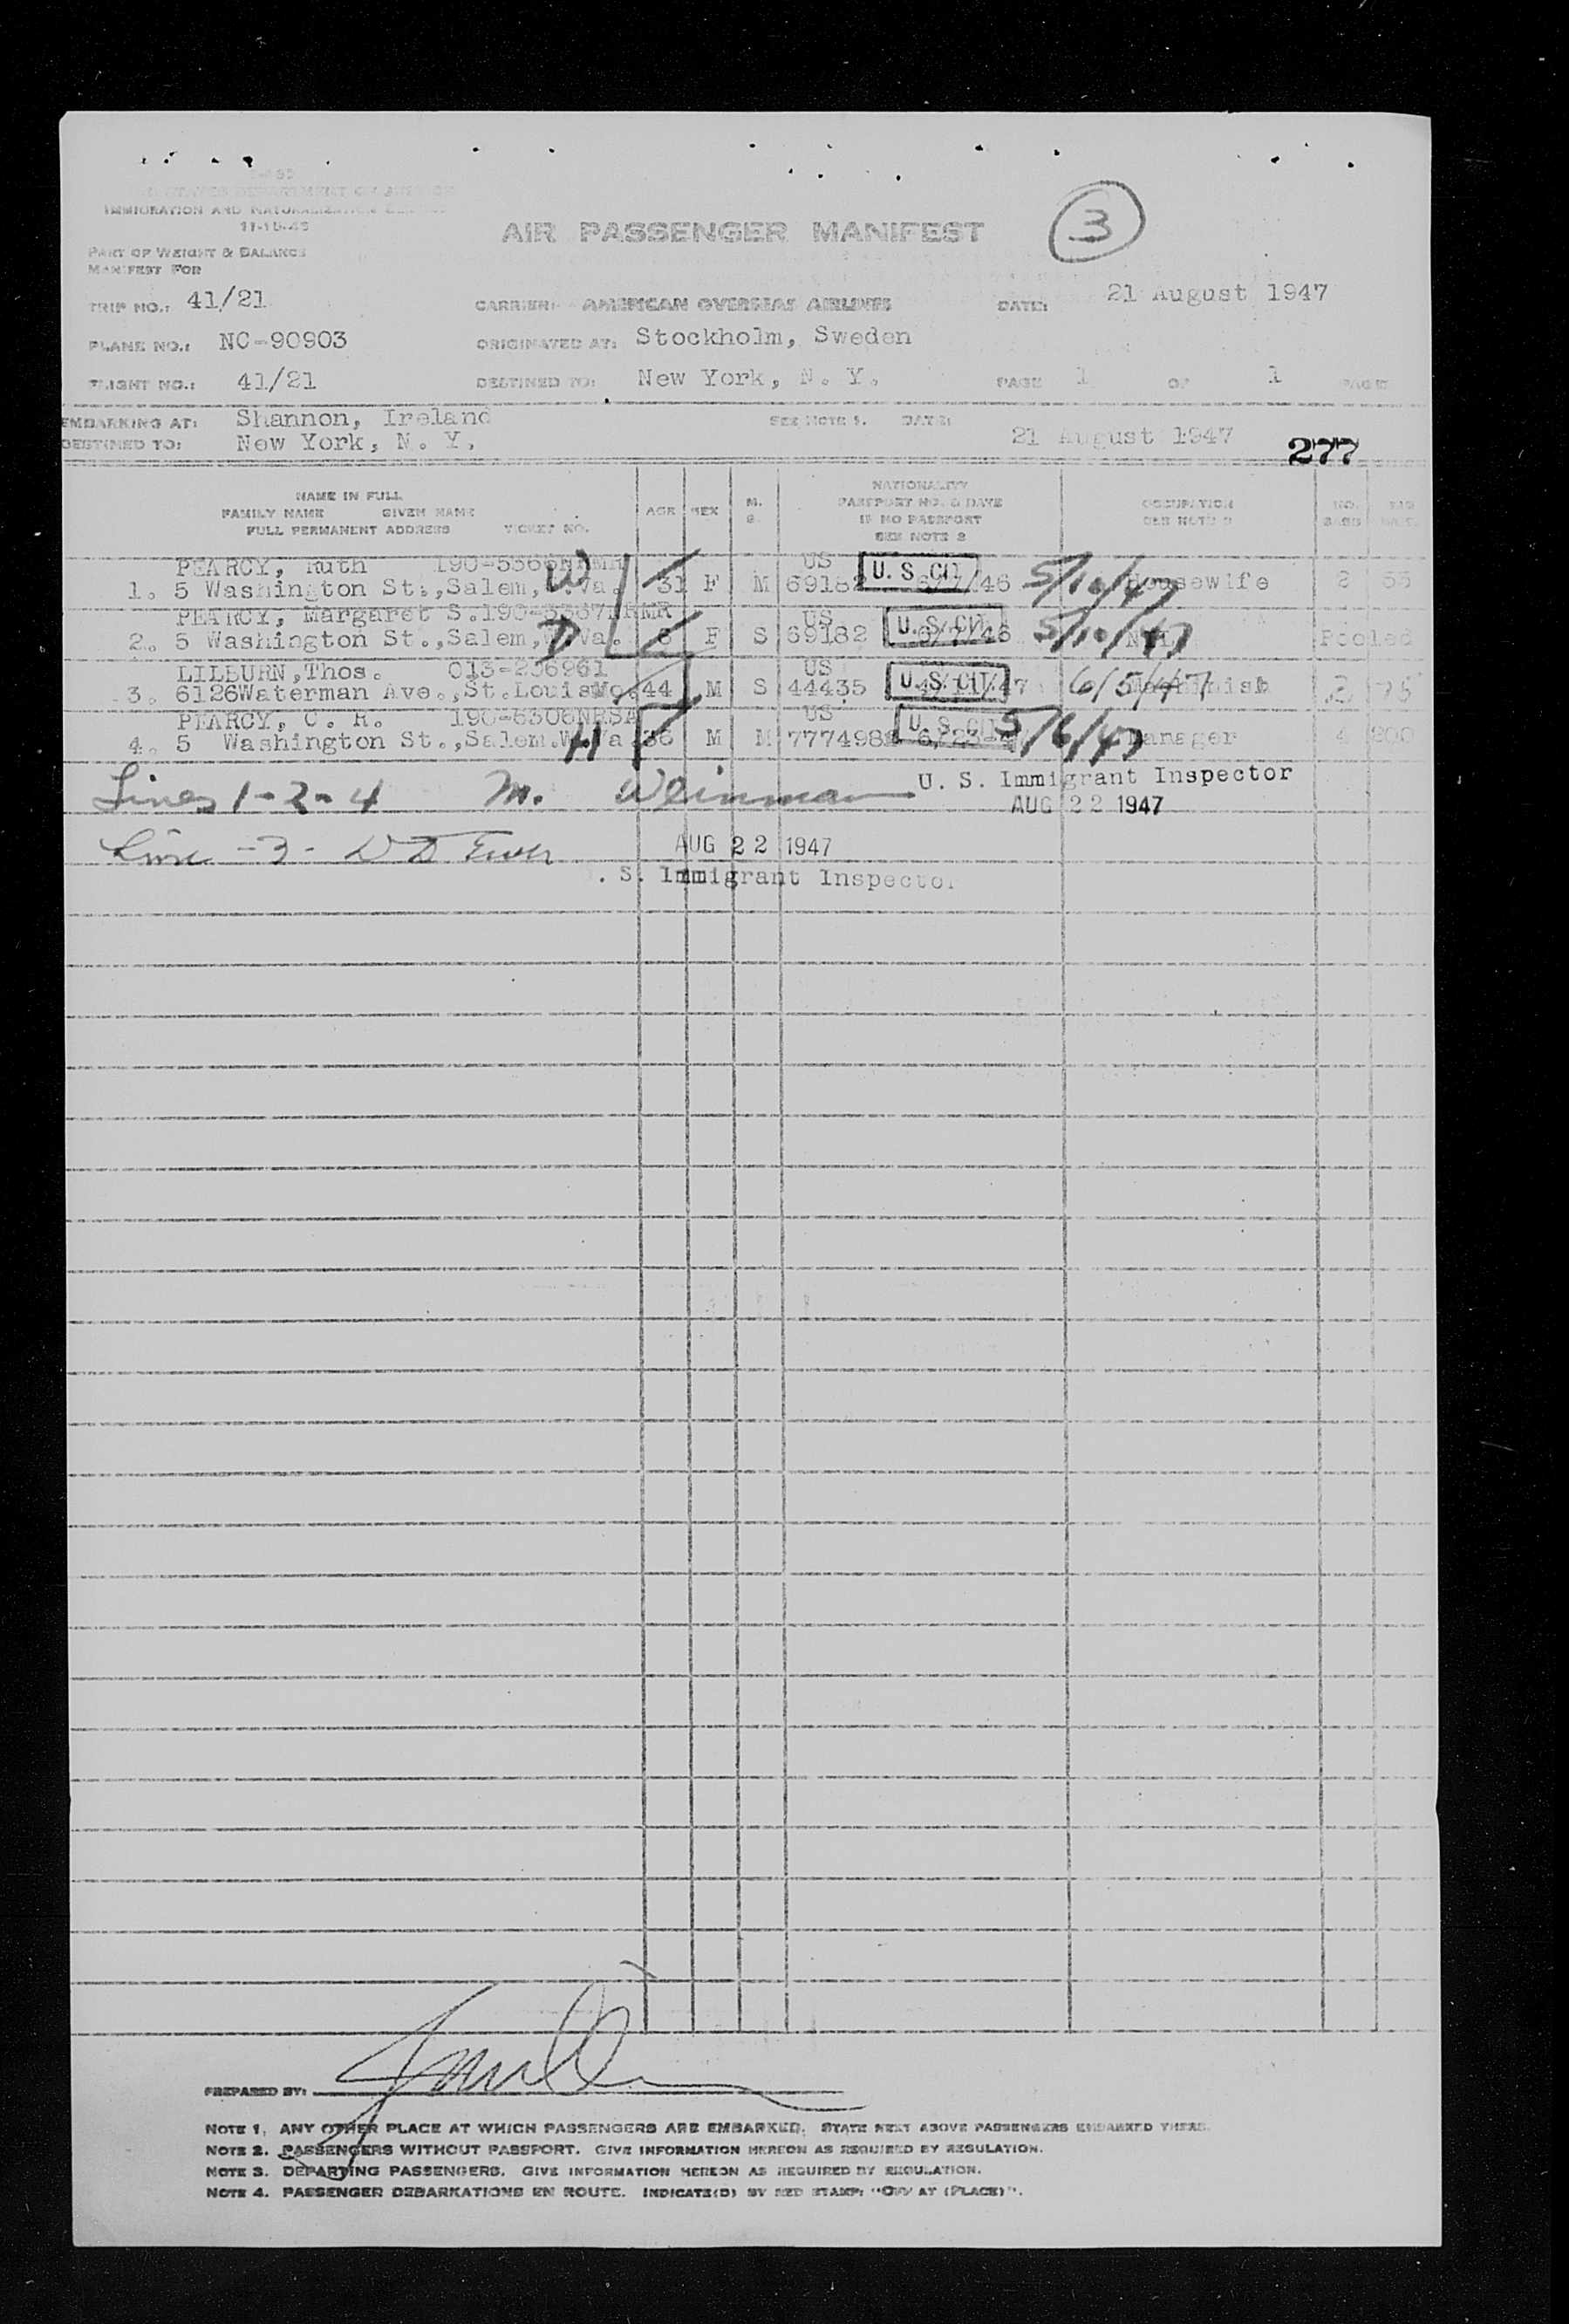 IMMIGRATION AND NATURALIZATION
11-15-45
AIR PASSENGER MANIFEST
3
PART OF WEIGHT & BALANCE
MANIFEST FOR
TRIP NO.: 41/21
CARRIER: AMERICAN OVERSEAS AIRLINES
DATE: 21 August 1947
PLANE NO.: NC-90903
ORIGINATED AT: Stockholm, Sweden
FLIGHT NO.: 41/21
DESTINED TO: New York, N. Y.
PAGE 1 OF 1 PAGE
EMBARKING AT: Shannon, Ireland
SEE NOTE 1. DATE: 21 August 1947
DESTINED TO: New York, N. Y.
277
NAME IN FULL
FAMILY NAME GIVEN NAME
FULL PERMANENT ADDRESS TICKET NO.
AGE SEX M. S
NATIONALITY
PASSPORT NO. & DATE
IF NO PASSPORT
SEE NOTE 2
OCCUPATION
SEE NOTE
NO. BAGS
PEARCY, Ruth US U. S. CIT
1. 5 Washington St., Salem, W.Va. 31 F M 69182 6/7/46 5/10/47 Housewife 2 55
W
PEARCY, Margaret S. US U. S. CIT
2. 5 Washington St., Salem, W.Va. 8 F S 69182 6/7/46 5/10/47 Pooled
D
LILBURN, Thos. 013-236961 US U. S. CIT
3. 6126 Waterman Ave., St. Louis Mo. 44 M S 44435 6/5/47 Machinist 2 75
PEARCY, C. R. US U. S. CIT
4. 5 Washington St., Salem. W. Va 36 M M 5/6/47 Manager 4 200
H
Lines 1-2-4 M. Weinman U. S. Immigrant Inspector
AUG 22 1947
Line -3-
AUG 22 1947
. S. Immigrant Inspector
PREPARED BY:
NOTE 1. ANY OTHER PLACE AT WHICH PASSENGERS ARE EMBARKED. STATE NEXT ABOVE PASSENGERS EMBARKED THERE.
NOTE 2. PASSENGERS WITHOUT PASSPORT. GIVE INFORMATION HEREON AS REQUIRED BY REGULATION.
NOTE 3. DEPARTING PASSENGERS. GIVE INFORMATION HEREON AS REQUIRED BY REGULATION.
NOTE 4. PASSENGER DEBARKATIONS EN ROUTE. INDICATE(D) BY RED STAMP: "OFF AT (PLACE)".